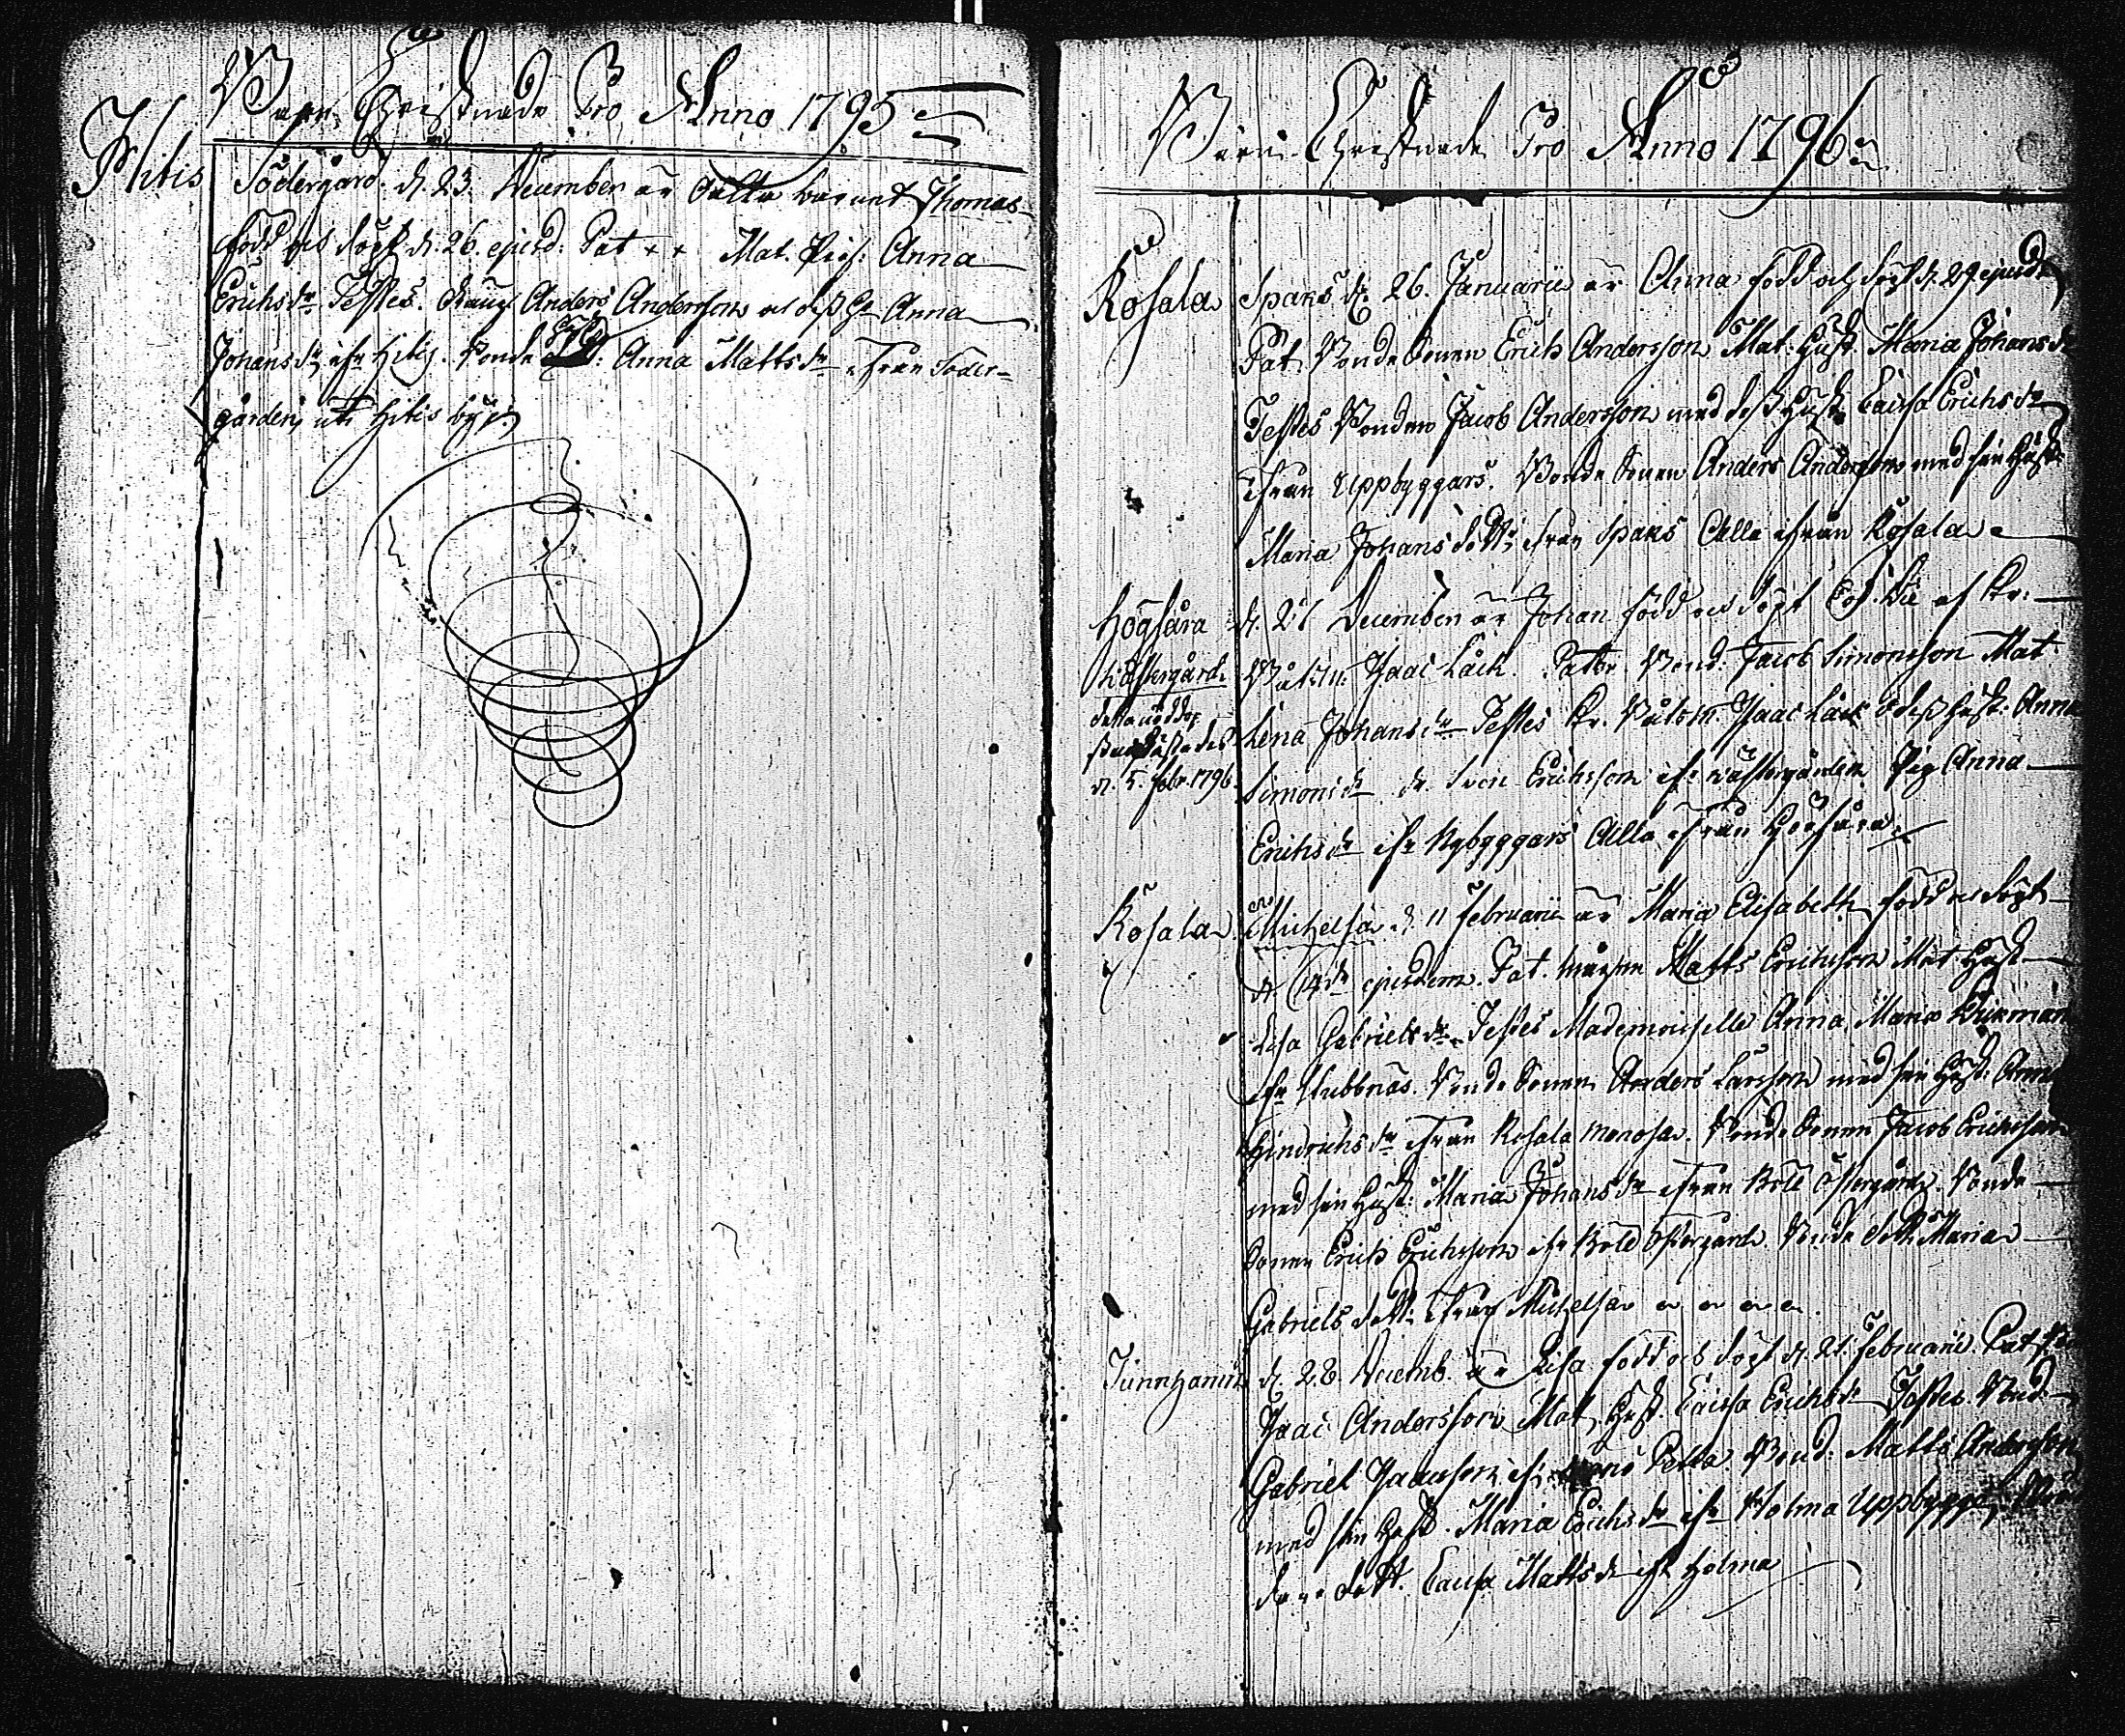 Barn Christnade Pro Anno 1795
Hitis
Södergård. d. 23. December är Oälta barnet Thomas
född och döpt d. 26. ejusd. Pat ++ Mat. Pig: Anna
Erichsdr Testes. Anders Andersson och dess H. Anna
Johansdr ifr Hitis. Bonde Anna Mattsdr ifrån Söder-
gården uti Hitis by
Barn Christnade Pro Anno 1796
Rosala
Spaks d. 26. Januarii är Anna född och döpt d. 29 ejusdem
Pat. Bonde Sonen Erich Andersson Mat: Hust. Maria Johansdr
Testes Bonden Jacob Andersson med dess Hustr Caisa Erichsdr
ifrån Uppbyggars. Bonde Sonen Anders Andersson med sin Hust
Maria Johans dott: ifrån Spaks Alla ifrån Rosala
Högsåra
Västergård
d. 5. Febr. 1796.
d. 21 December är Johan född och döpt af Kr:
Båtsm. Isaac Läck. Pater Bond. Jacob Simonsson Mat
Lena Johansdr Testes Kr. Båtsm. Isaac Läck & dess Hust: Anna
Simonsdr dr. Sven Erichsson ifr Västergården Pig Anna
Erichsdr ifr Nybyggars Alla ifrån Högsåra
Rosala
Michelsa d. 11 Februarii är Maria Elisabeth född och döpt
d. 14de ejusdem. Pat. Matts Erichsson Mat Hust
Lisa Gabrielsdr Testes Mademoiselle Anna Maria
ifr Stubbnäs. Bonde Sonen Anders Larsson med sin Hust. Anna
Hindrichsdr ifrån Rosala Monosa. Bonde Sonen Jacob Erichsson
med sin Hust: Maria Johansdr ifrån Böle Östergård. Bonde
Sonen Erich Erichsson ifr Böle Östergård. Bonde Dott. Maria
Gabriels dott: ifrån Michelsa
Tunnhamn
d. 28 Decemb. är Lisa född och döpt d. 21. Februarii. Pat.
Isaac Andersson Mat. Hust. Caisa Erichsdr Testes Bond:
Gabriel Isaacsson ifr Pella Bond: Matts Andersson
med sin Hust. Maria Erichsdr ifr Holma Uppbyggars
dott. Caisa Mattsdr ifr Holma